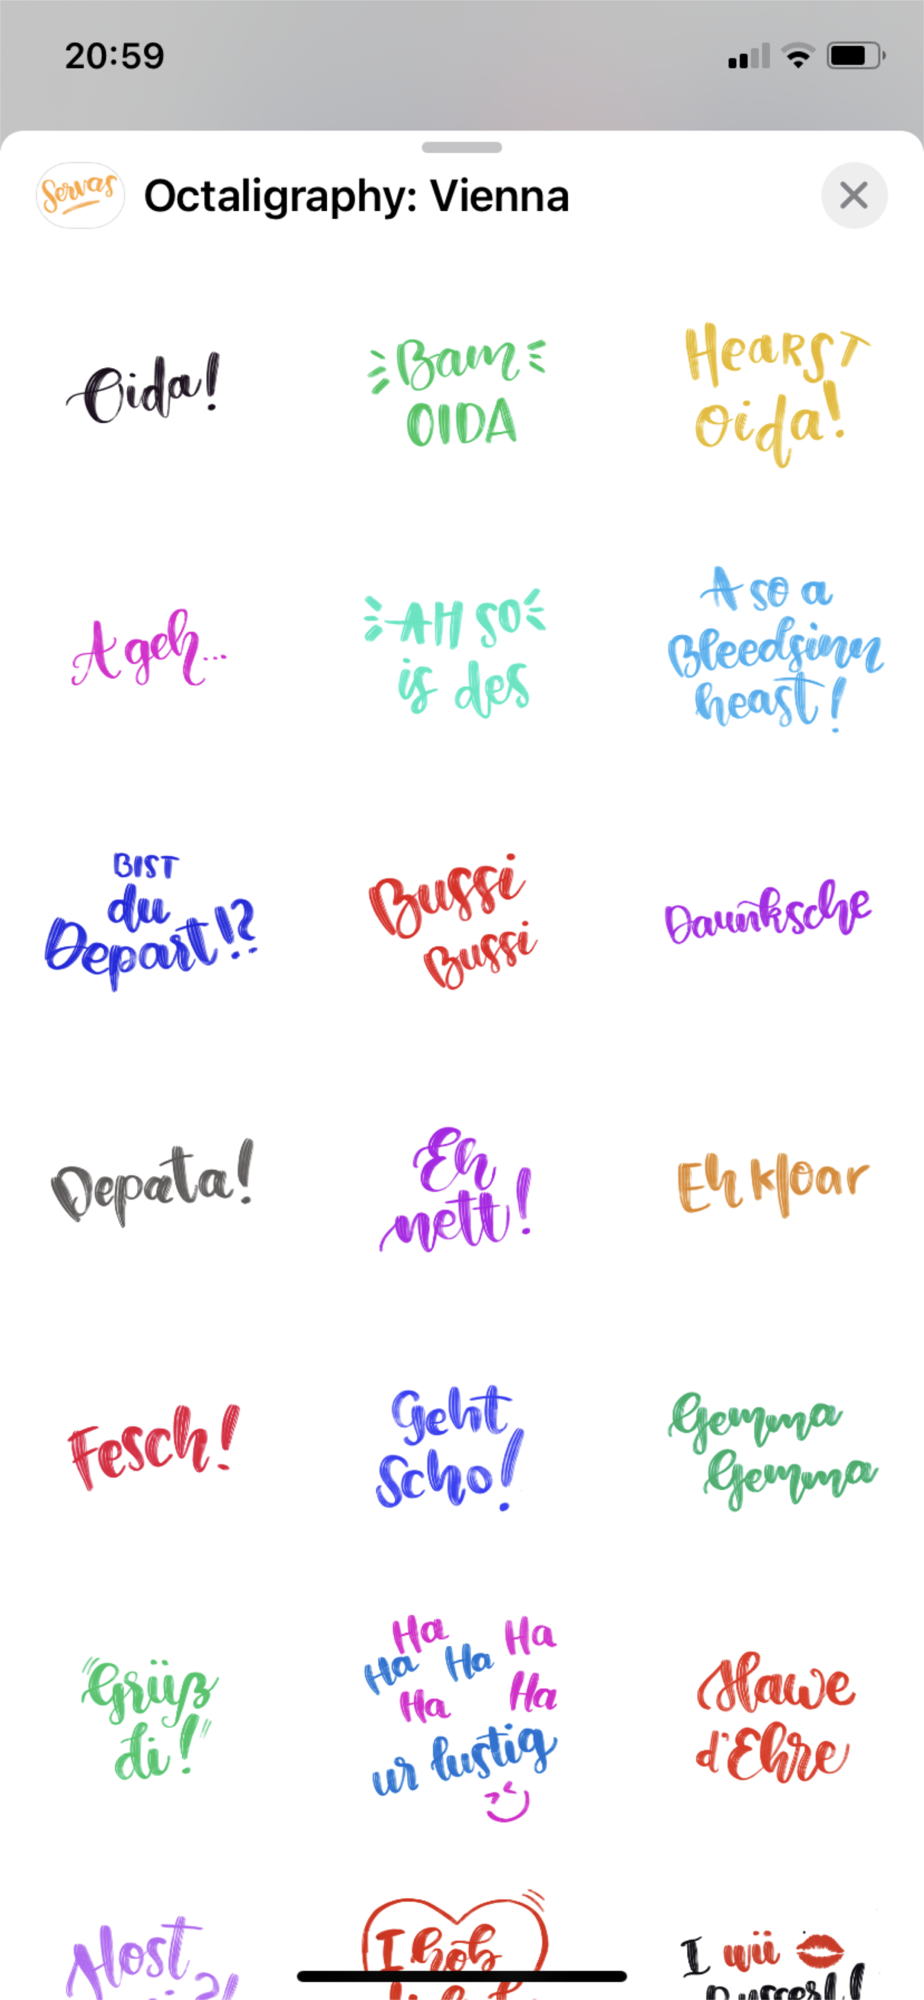 20:59
Servas
Octaligraphy: Vienna
Oida!
Bam
OIDA
HEARST
oida!
A geh...
AH SO
is des
A so a
Bleedsinn
heast!
BIST
du
Depart!?
Bussi
Bussi
Daunksche
Depata!
Eh
nett!
Eh kloar
Fesch!
Geht
Scho!
Gemma
Gemma
"Grüß
di!"
Ha Ha
Ha Ha
Ha Ha
ur lustig
Hawe
d'Ehre
Host
I hob
I wü
Busserl!